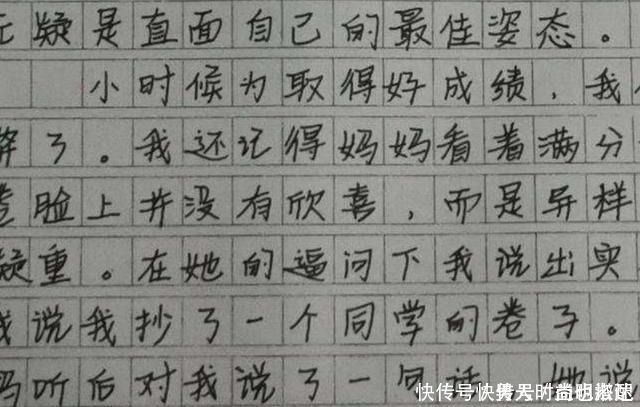 无疑是直面自己的最佳姿态。
小时候为取得好成绩，我
弊了。我还记得妈妈看着满分
卷脸上并没有欣喜，而是异样
凝重。在她的逼问下我说出实
我说我抄了一个同学的卷子。
妈听后对我说了一句话，她说
快传号